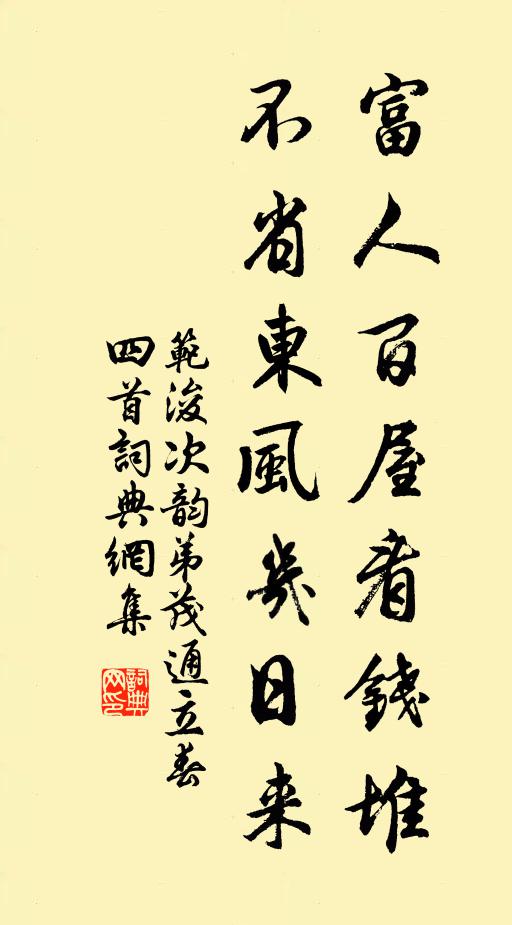 富人百屋看錢堆
不省東風幾日来
範浚次韵弟茂通立春
四首詞典網集
詞典网印